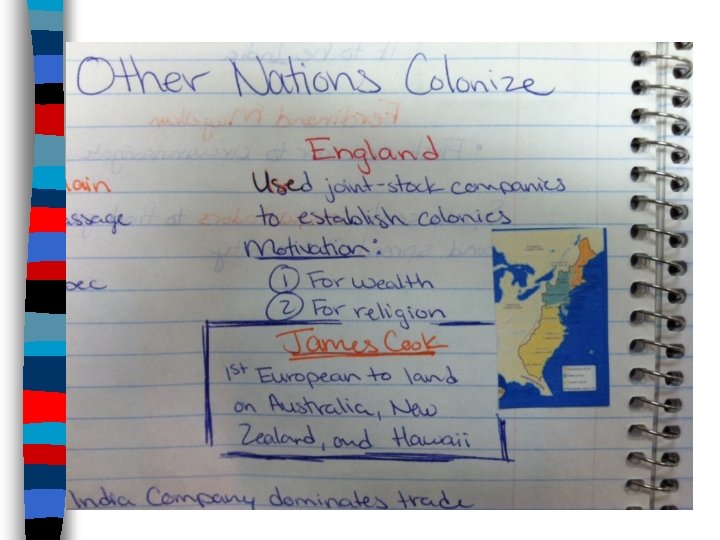 Other Nations Colonize
England
Used joint-stock companies
ssage to establish colonies
Motivation:
① For wealth
② For religion
James Cook
1st European to land
on Australia, New
Zealand, and Hawaii
India Company dominates trade